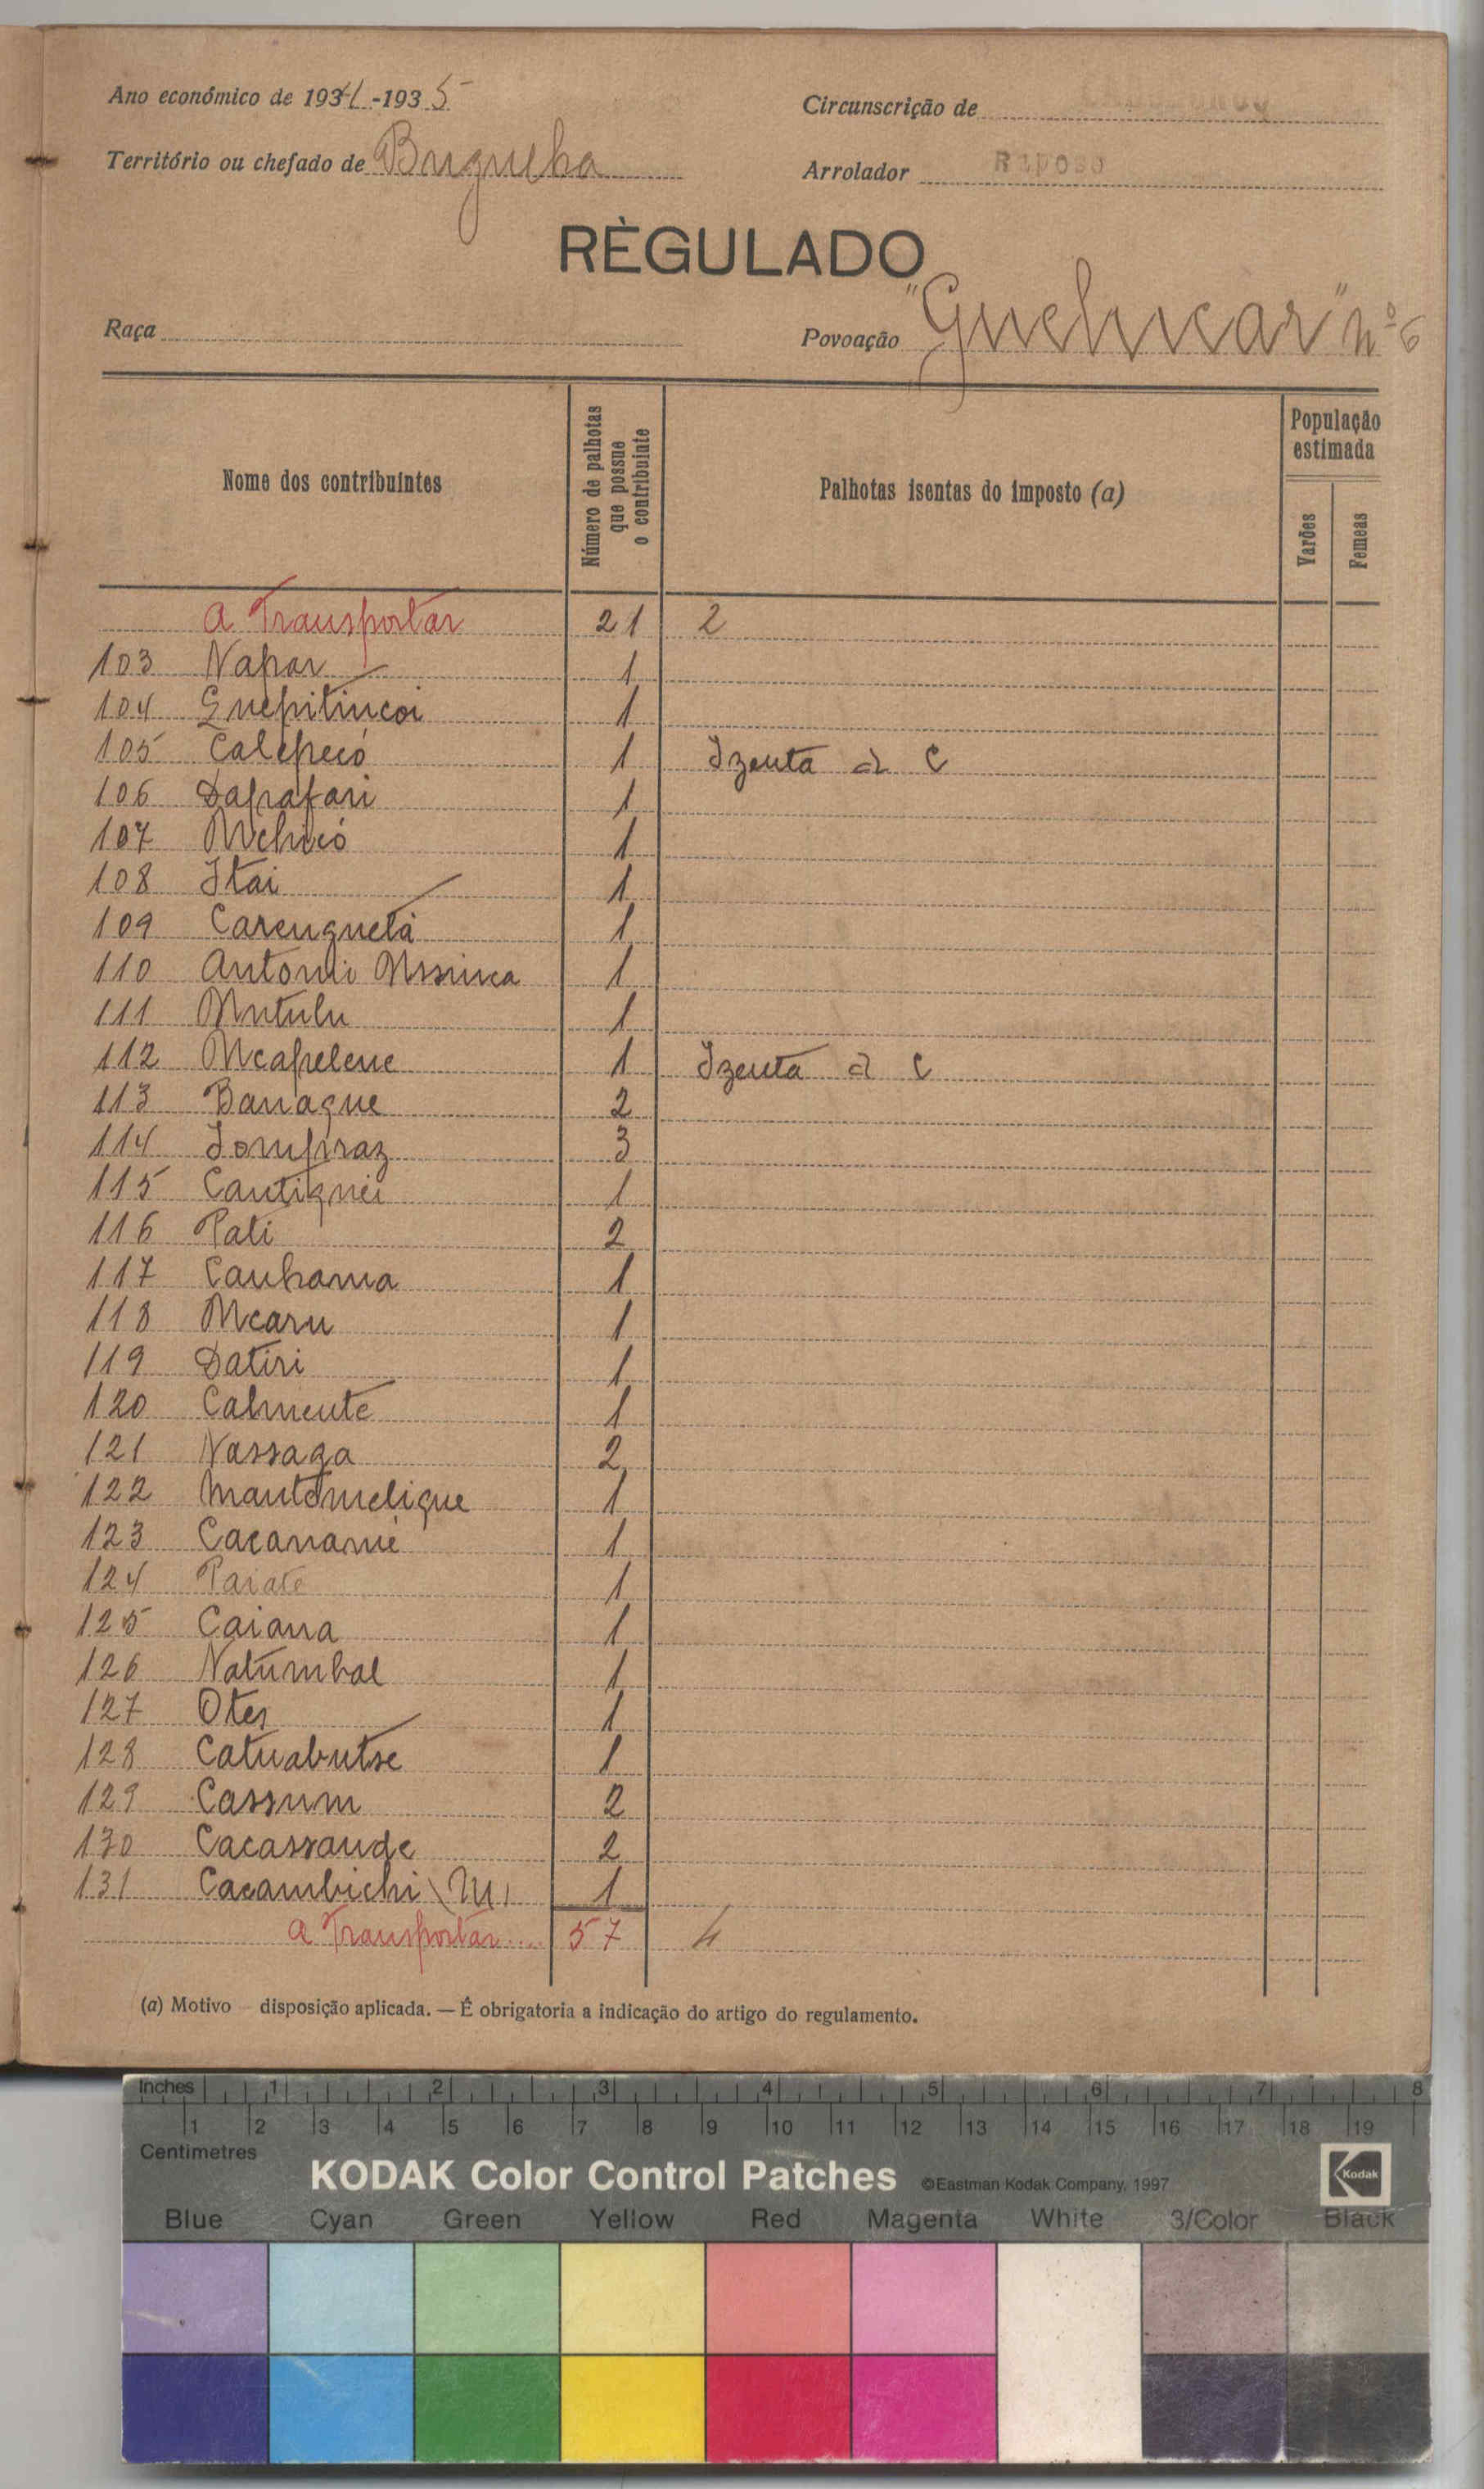 Ano económico de 1934-1935
Circunscrição de
Território ou chefado de Bugulha
Arrolador Raposo
RÈGULADO
Raça
Povoação "Guehucar" nº 6
Nome dos contribuintes
Número de palhotas que possue o contribuinte
Palhotas isentas do imposto (a)
População estimada
Varões
Femeas
A Transportar 21 2
103 Napar 1
104 Guepitincoi 1
105 Calepecó 1 Izenta a C
106 Dapafari 1
107 Mchicó 1
108 Itai 1
109 Carenguetá 1
110 Antoni Mssinca 1
111 Mutulu 1
112 Mcapelene 1 Izenta a C
113 Banague 2
114 Jompraz 3
115 Cantignei 1
116 Pati 2
117 Canhama 1
118 Mcaru 1
119 Datiri 1
120 Calmente 1
121 Nassaga 2
122 Mantomeligue 1
123 Cacanamé 1
124 Paiate 1
125 Caiana 1
126 Natumbal 1
127 Otes 1
128 Catuabutse 1
129 Cassum 2
130 Cacassande 2
131 Cacambichi (M) 1
A Transportar.... 57 4
(a) Motivo disposição aplicada. — É obrigatoria a indicação do artigo do regulamento.
Inches 1 2 3 4 5 6 7 8
1 2 3 4 5 6 7 8 9 10 11 12 13 14 15 16 17 18 19
Centimetres
KODAK Color Control Patches ©Eastman Kodak Company, 1997 Kodak
Blue Cyan Green Yellow Red Magenta White 3/Color Black